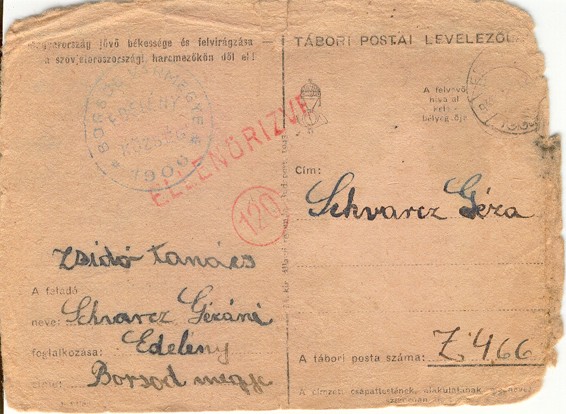 Magyarország jövő békessége és felvirágzása
a szovjetoroszországi harcmezőkön dől el!
BORSOD VÁRMEGYE
EDELÉNY
KÖZSÉG
1900
ELLENŐRIZVE
120
Zsidó tanács
A feladó
neve: Schvarcz Gézáné
foglalkozása: Edelény
Borsod megye
TÁBORI POSTAI LEVELEZŐL
A felvevő
hiva al
kele
bélyegzője
Cím:
Schvarcz Géza
A tábori posta száma: Z 466
A címzett csapattestének, alakulatának